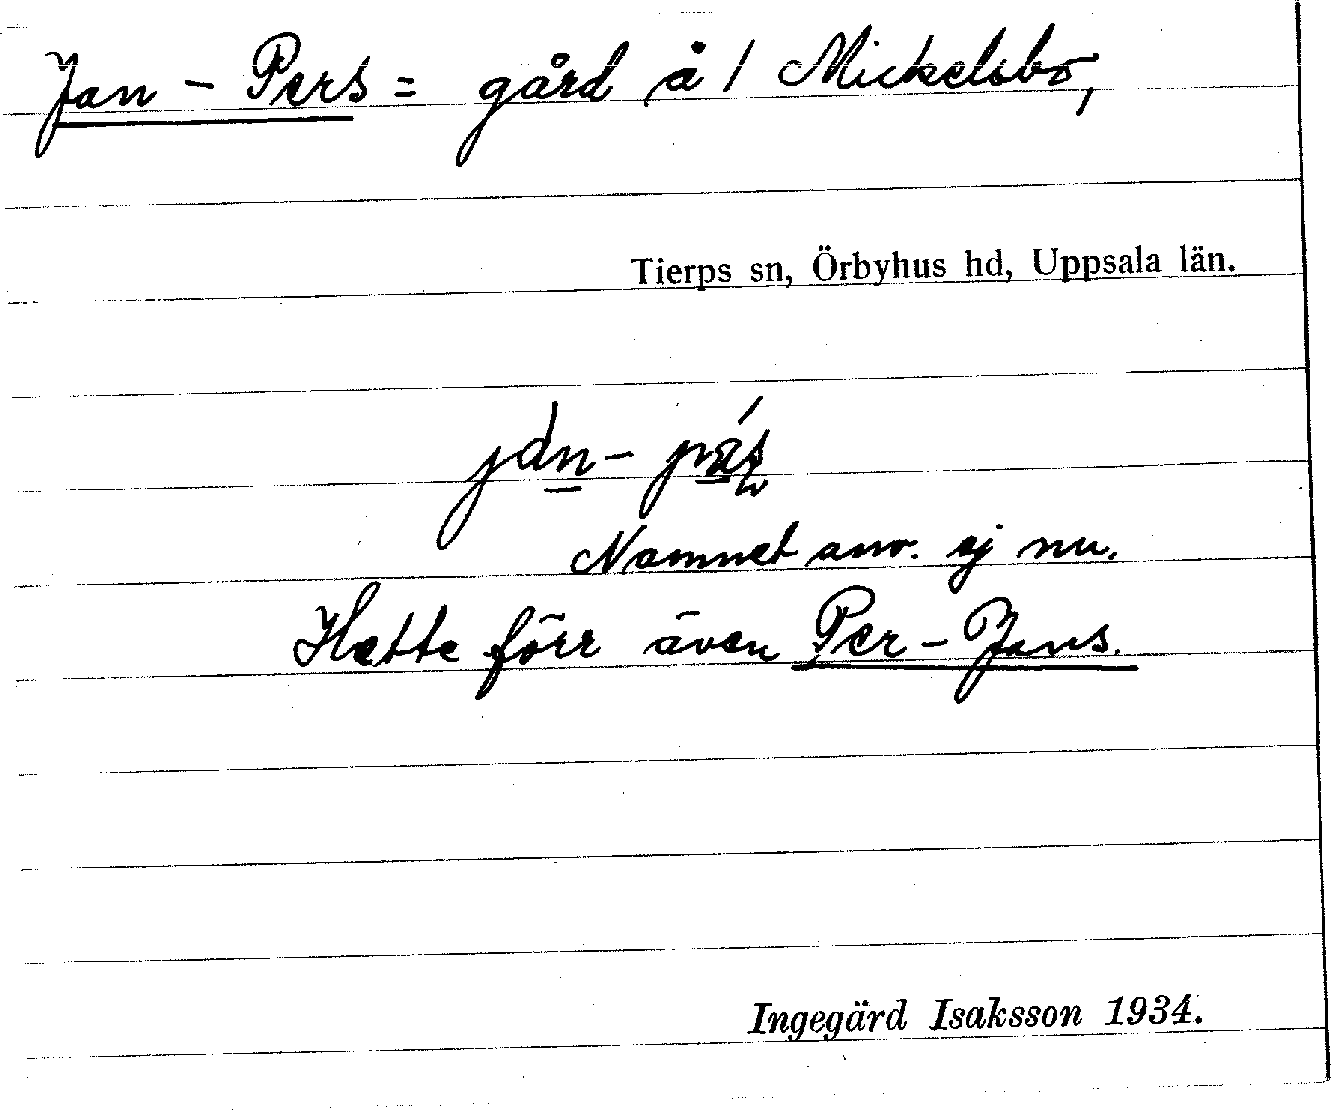 Jan - Pers = gård å 1 Mickelsbo,
Tierps sn, Örbyhus hd, Uppsala län.
Namnet anv. ej nu.
Hette förr även Per - Jans.
Ingegärd Isaksson 1934.